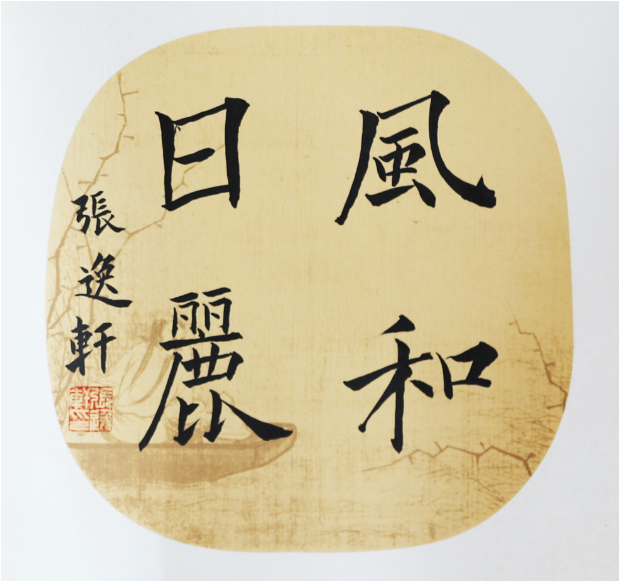 風和
日麗
張逸軒